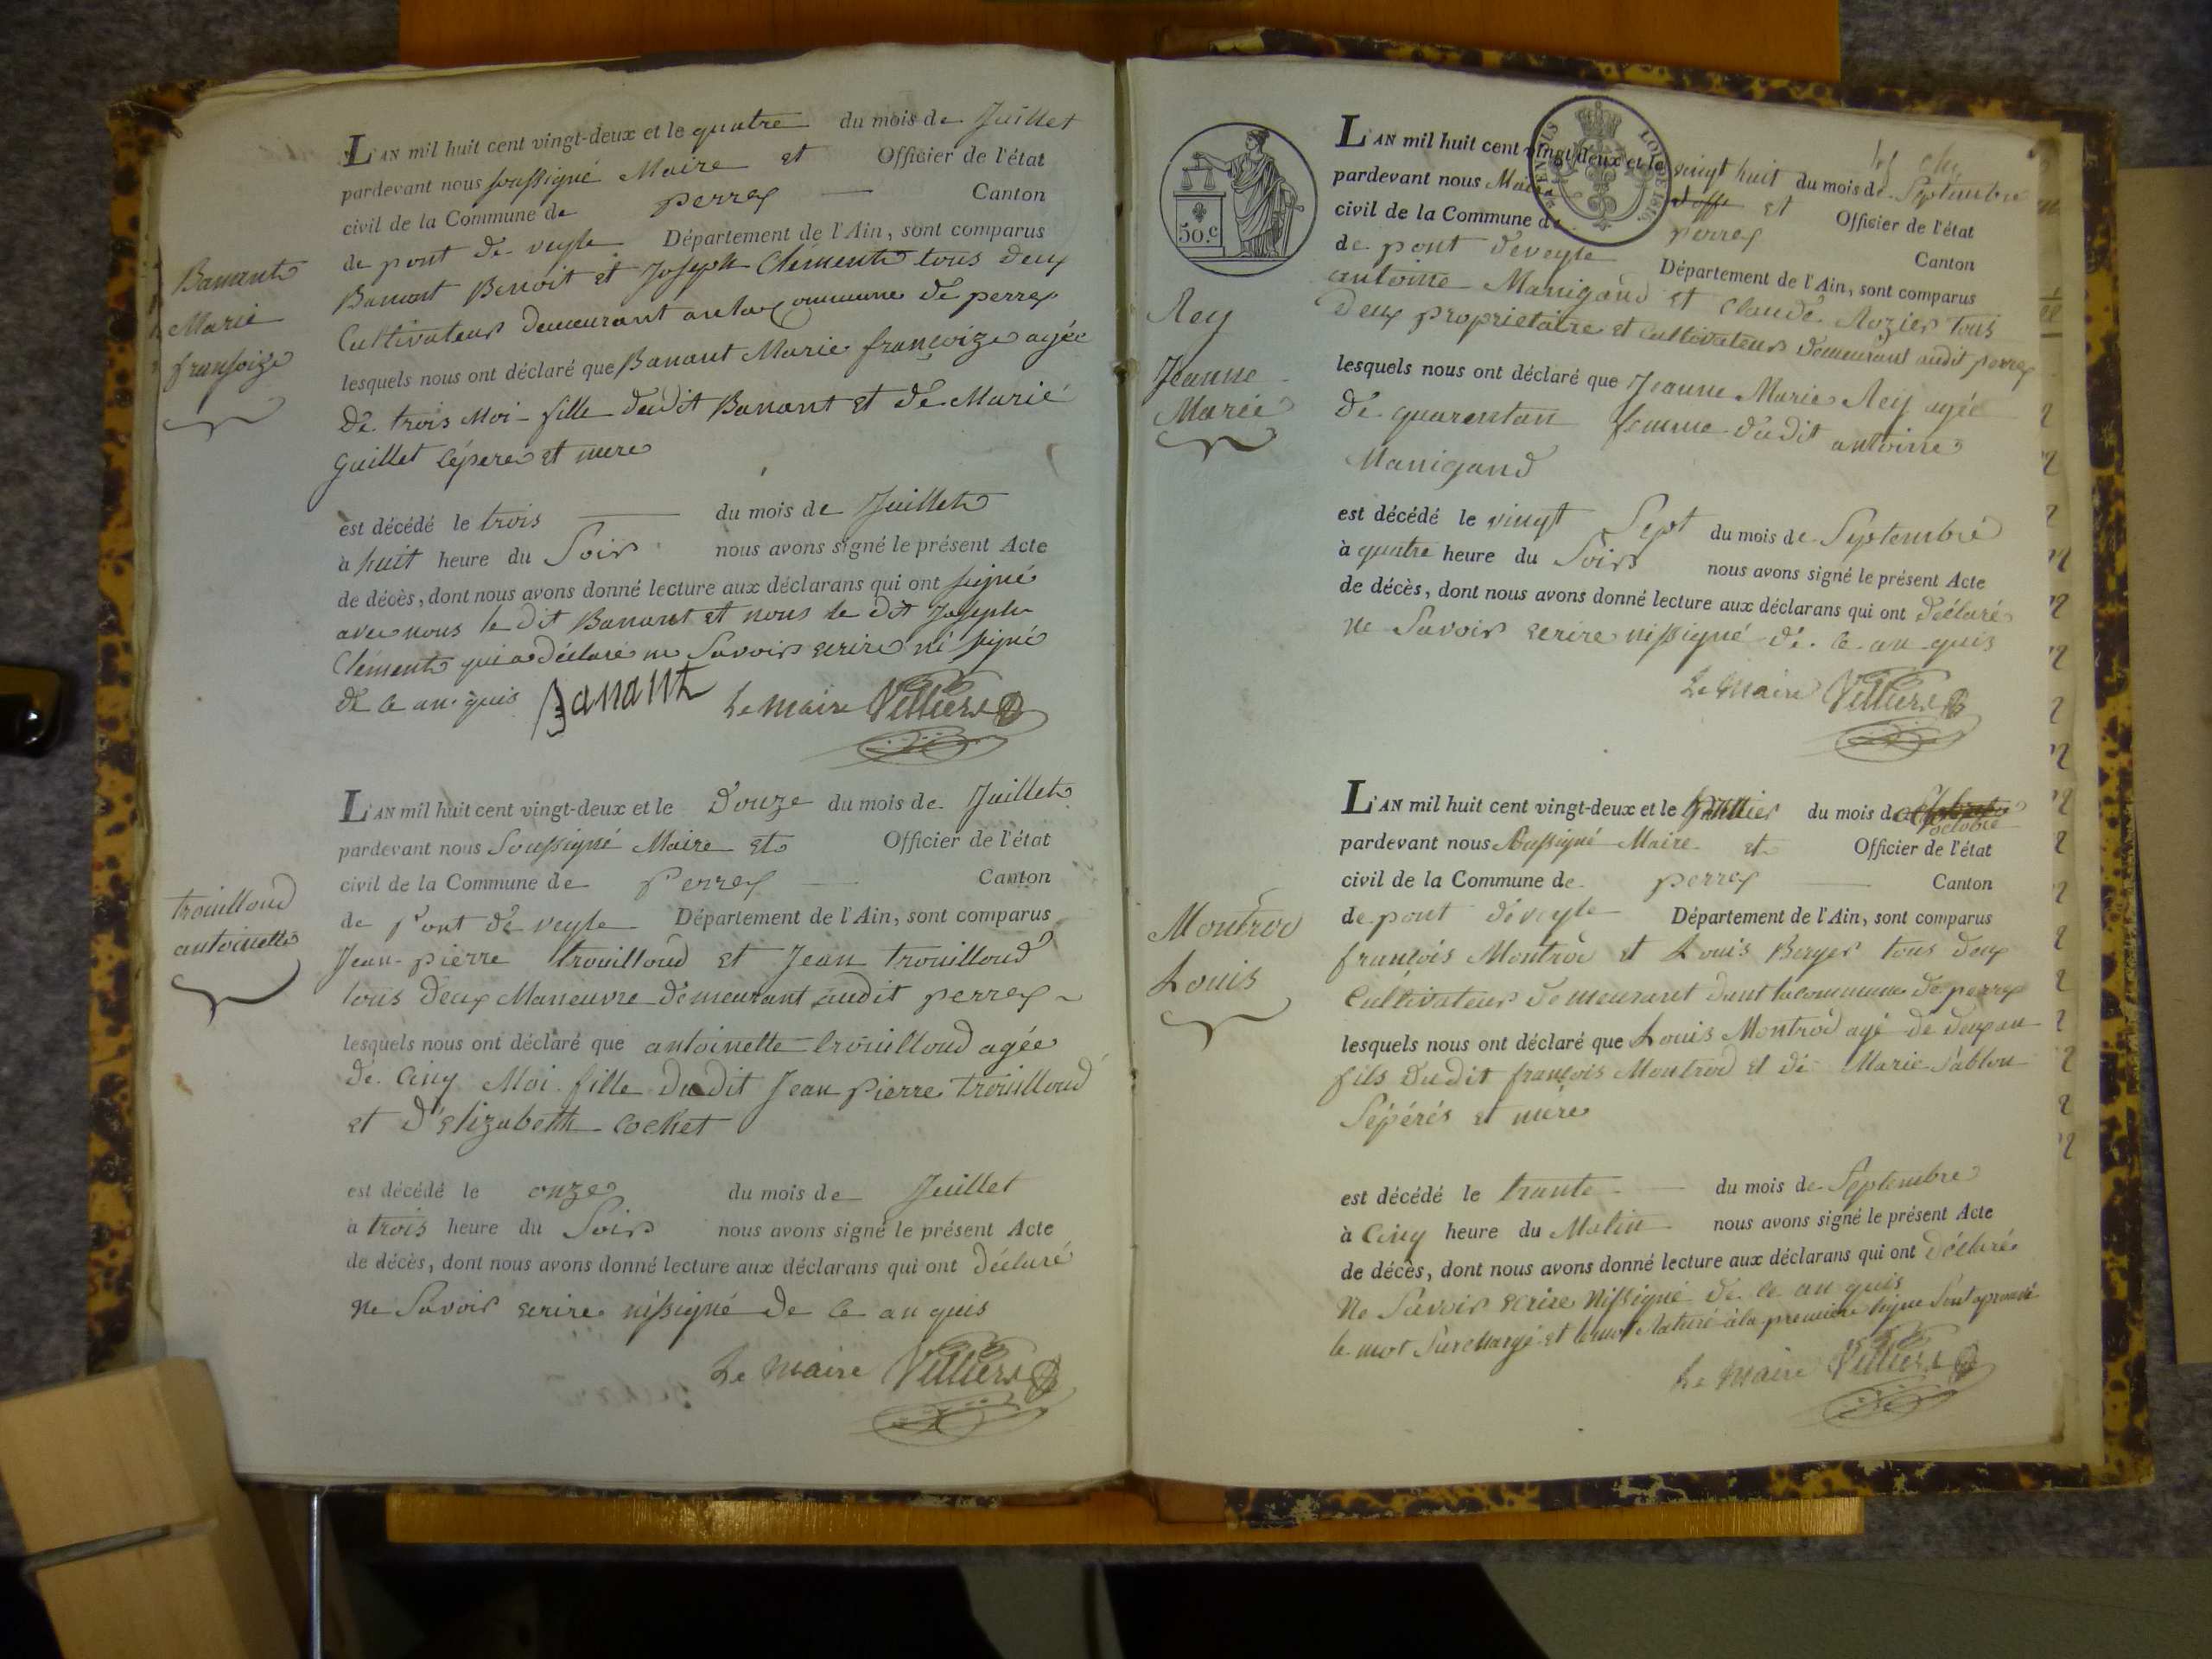 Banant
Marie
françoize
L'AN mil huit cent vingt-deux et le quatre du mois de Juillet
pardevant nous soussigné Maire et Officier de l'état
civil de la Commune de perrex Canton
de pont de veyle Département de l'Ain, sont comparus
Banant Benoit et Joseph Clement tous deux
Cultivateur demeurant en la Commune de perrex
lesquels nous ont déclaré que Banant Marie françoize agée
de trois Moi fille dudit Banant et de Marie
Guillet cépere et mere
est décédé le trois du mois de Juillet
à huit heure du Soir nous avons signé le présent Acte
de décès, dont nous avons donné lecture aux déclarans qui ont signé
avec nous le dit Banant et nous le dit Joseph
Clement qui a déclaré ne Savoir ecrire ni signé
de ce anquis Banant Le maire Villiers
trouilloud
antoinette
L'AN mil huit cent vingt-deux et le Douze du mois de Juillet
pardevant nous Soussigné Maire et Officier de l'état
civil de la Commune de Perrex Canton
de Pont de veyle Département de l'Ain, sont comparus
Jean-pierre trouilloud et Jean trouilloud
tous deux Maneuvre demeurant audit perrex
lesquels nous ont déclaré que antoinette trouilloud agée
de Cinq Moi fille Dudit Jean pierre trouilloud
et d'elizabeth cochet
est décédé le onze du mois de Juillet
à trois heure du Soir nous avons signé le présent Acte
de décès, dont nous avons donné lecture aux déclarans qui ont déclaré
ne Savoir ecrire ni signé de ce anquis
Le maire Villiers
50.c
LOI DE 1816.
Rey
Jeanne
Marie
L'AN mil huit cent vingt-deux et le vingt huit du mois de Septembre
pardevant nous Maire et Officier de l'état
civil de la Commune de perrex Canton
de pont deveyle Département de l'Ain, sont comparus
antoine Manigand et Claude Rozier tous
deux proprietaire et cultivateur demeurant audit perrex
lesquels nous ont déclaré que Jeanne Marie Rey agée
de quarentan femme dudit antoine
Manigand
est décédé le vingt Sept du mois de Septembre
à quatre heure du Soir nous avons signé le présent Acte
de décès, dont nous avons donné lecture aux déclarans qui ont déclaré
ne Savoir ecrire ni signé de ce anquis
Le Maire Villiers
Montrod
Louis
L'AN mil huit cent vingt-deux et le premier du mois de octobre
pardevant nous Soussigné Maire et Officier de l'état
civil de la Commune de perrex Canton
de pont deveyle Département de l'Ain, sont comparus
françois Montrod et Louis Berger tous deux
Cultivateur demeurant dant la commune de perrex
lesquels nous ont déclaré que Louis Montrod agé de deux an
fils dudit françois Montrod et de Marie Sablon
Sépérés et mére
est décédé le trante du mois de Septembre
à Cinq heure du Matin nous avons signé le présent Acte
de décès, dont nous avons donné lecture aux déclarans qui ont déclaré
Ne Savoir ecrire ni signé de ce anquis
le mot Surchargé et le mot Raturé à la premiere ligne Sont aprouvé
Le Maire Villiers